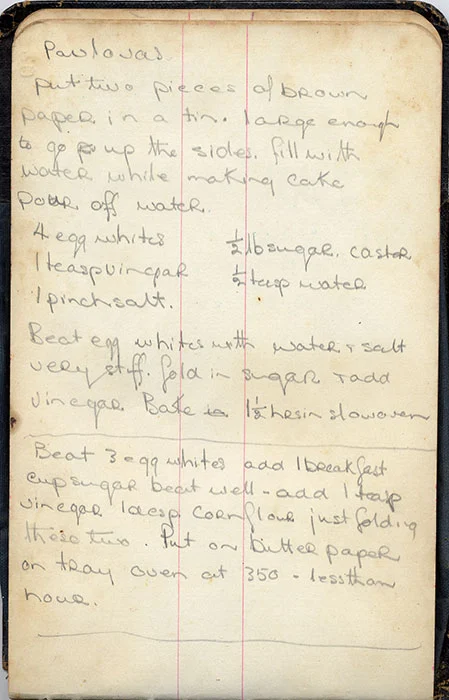 Pavlovas
put two pieces of brown
paper in a tin. large enough
to go up the sides. fill with
water while making cake
pour off water.
4 egg whites ½ lb sugar. castor
1 teasp vinegar ½ teasp water
1 pinch salt.
Beat egg whites with water & salt
very stiff. fold in sugar & add
vinegar Bake 1½ hrs in slow oven
Beat 3 egg whites add 1 breakfast
cup sugar beat well - add 1 teasp
vinegar 1 desp cornflour just folding
these two. Put on butter paper
on tray oven at 350 - less than
hour.